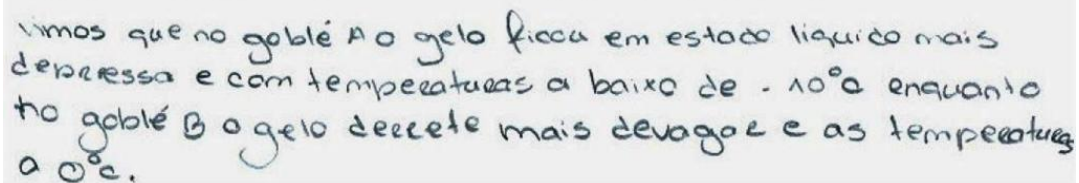 vimos que no goblé A o gelo ficou em estado liquido mais
depressa e com temperaturas a baixo de - 10°c enquanto
no goblé B o gelo derrete mais devagar e as temperaturas
a 0°c.